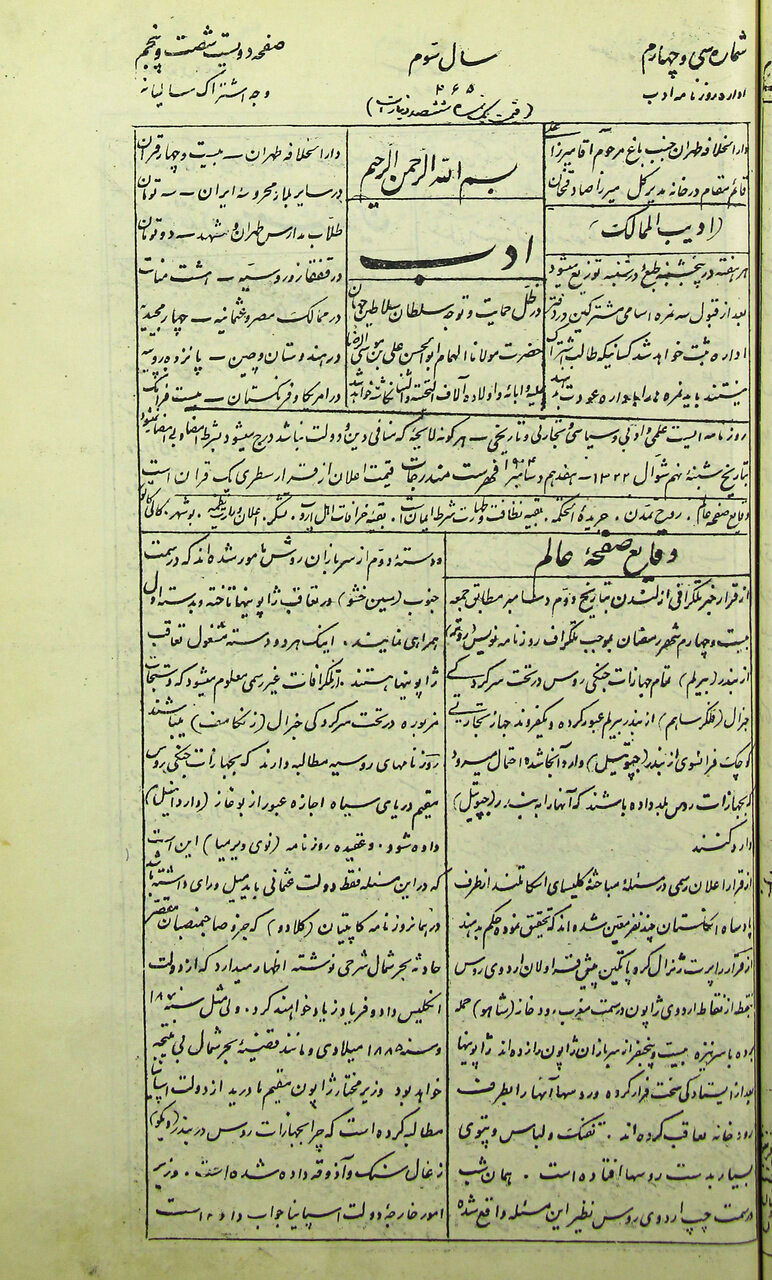 شماره سی و چهارم
سال سوم
صفحه دویست شصت و پنجم
اداره روزنامه ادب
۲۶۵
وجه اشتراک سالیانه
(قیمت یک نمره ششصد دینار است)
دار الخلافه طهران جنب باغ مرحوم آقا میرزا
قائم مقام در خانه مدیر کل میرزا صادقخان
(ادیب الممالک)
هر هفته در پنجشنبه طبع و در شنبه توزیع میشود
بعد از قبول سه نمره اسامی مشترکین در دفتر
اداره ثبت خواهد شد کسانیکه طالب اشتراک
نیستند باید نمره ها را باداره عودت دهند
بسم الله الرحمن الرحیم
ادب
در ظل حمایت و توجه سلطان سلاطین جهان
حضرت مولانا الهمام ابو الحسن علی بن موسی الرضا
علیه و آبائه و اولاده آلاف التحیة و الثنا
دار الخلافه طهران – بیست و چهار قران
در سایر بلاد محروسه ایران – سه تومان
طلاب مدارس طهران و مشهد – دو تومان
در قفقاز و روسیه – هشت منات
در ممالک مصر و عثمانیه – چهار مجیدیه
در هندوستان و چین – پانزده روپیه
در امریکا و فرنگستان – بیست فرانک
روزنامه ایست علمی و ادبی و سیاسی و تجارتی و تاریخی – هر گونه لایحه که منافی دین و دولت نباشد درج میشود بشرط امضا و بی امضا
بتاریخ شنبه نهم شوال ۱۳۲۲ – هفدهم دسامبر ۱۹۰۴ فهرست مندرجات قیمت اعلان از قرار سطری یک قران است
وقایع صفحه عالم . روح تمدن . جریدة الحکمه . بقیه نظافت و طهارت شرط ایمان است . بقیه خرافات اهل اروپ . تشکر . اعلان . بوشهر .
وقایع صفحهٔ عالم
از قرار خبر تلگرافی از لندن بتاریخ دوم دسامبر مطابق جمعه
بیست و چهارم شهر رمضان بموجب تلگراف روزنامه نویس (روتر)
از بندر (بیرلم) تمام جهازات جنگی روس در تحت سرکردگی
جنرال (فلکرساهم) از بندر بیرلم عبور کرده و یکفروند جهاز تجارتی
کوچک فرانسوی از بندر (جیبوتیل) وارد آنجا شده احتمال میرود
که بجهازات روس بلد داده باشند که آنها را به بندر (جیبوتیل)
وارد کنند
از قرار اعلان رسمی در مسئله مباحثهٔ کلیسای اسکاتلند از طرف
پادشاه انگلستان چند نفر معین شده اند که تحقیق نموده حکم بدهند
از قرار راپرت ژنرال کروپاتکین پیش قراولان اردوی روس
بنقطه از نقاط اردوی ژاپون در سمت مغرب رودخانه (شاهو) حمله
کرده با سر نیزه بیست و پنجنفر از سربازان ژاپون را زده اند ژاپونیها
بعد از ایستادگی سخت فرار کرده و روسها آنها را بطرف
رودخانه تعاقب کرده اند . تفنگ و لباس و پتوی
بسیار بدست روسها افتاده است . همان شب
در سمت چپ اردوی روس نظیر این مسئله واقع شده
و دستهٔ دوم از سربازان روس مامور شده اند که در سمت
جنوب (سین خنتو) در تعاقب ژاپونیها تاخته و بدسته اول
همراهی نمایند . اینک هر دو دسته مشغول تعاقب
ژاپونیها هستند . از تلگرافات غیر رسمی معلوم میشود که دستجات
مزبوره در تحت سرکردگی جنرال (زنکامف) میباشند
روزنامهای روسیه مطالبه دارند که بجهازات جنگی روس
مقیم دریای سیاه اجازه عبور از بوغاز (داردانیل)
داده شود . و عقیده روزنامه (نوی ویرمیا) این است
که در این مسئله فقط دولت عثمانی باید میل و رای داشته باشد
در همان روزنامه کاپیتان (کلادو) که جزو صاحبمنصبان مقصر
حادثه بحر شمال شرحی نوشته اظهار میدارد که از دولت
انگلیس داد و فریاد زیاد خواهند کرد . ولی مثل سنه
و سنه ۱۸۸۵ میلادی و مانند قضیهٔ بحر شمال بی نتیجه
خواهد بود وزیر مختار ژاپون مقیم مادرید از دولت اسپانیا
مطالبه کرده است که چرا بجهازات روس در بندر (ویگو)
زغال سنگ و آذوقه داده شده است . وزیر
امور خارجهٔ دولت اسپانیا جواب داده است